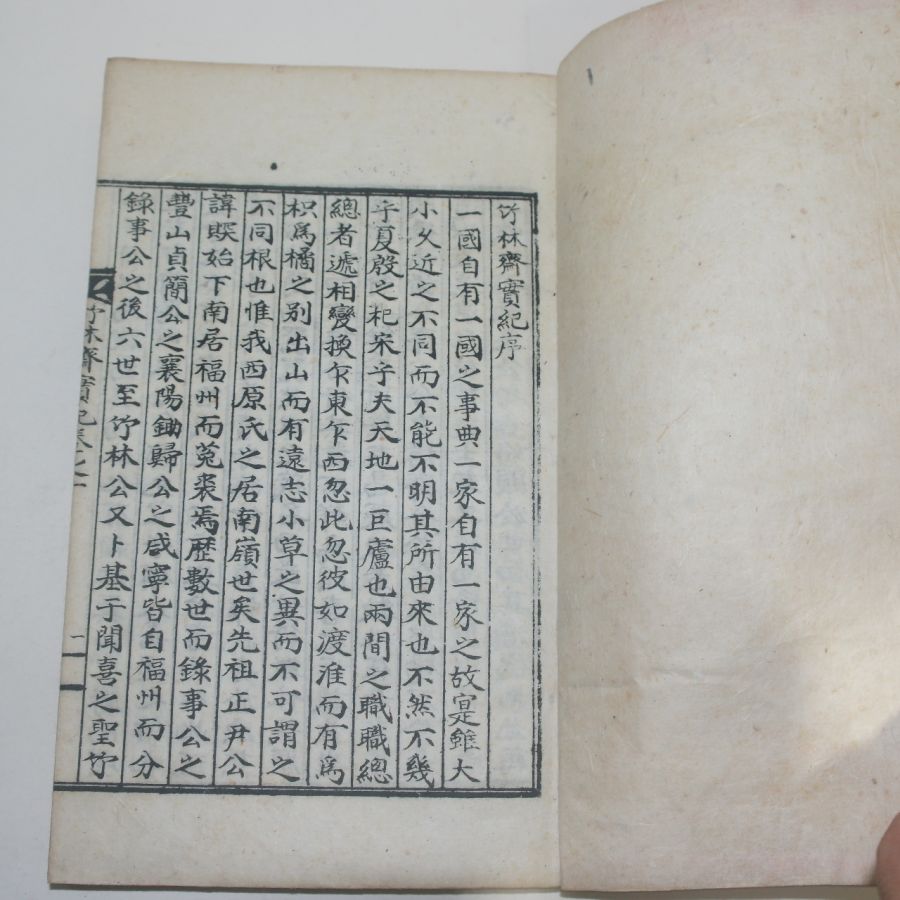 竹林齋實紀序
一國自有一國之事典一家自有一家之故寔雖大
小久近之不同而不能不明其所由來也不然不幾
乎夏殷之杞宋乎夫天地一巨廬也兩間之職職總
總者遞相變換乍東乍西忽此忽彼如渡淮而有爲
枳爲橘之別出山而有遠志小草之異而不可謂之
不同根也惟我西原氏之居南嶺世矣先祖正尹公
諱暌始下南居福州而菟裘焉歷數世而錄事公之
豐山貞簡公之襄陽鋤歸公之咸寧皆自福州而分
錄事公之後六世至竹林公又卜基于聞喜之聖竹
竹林齋實紀卷之一
一